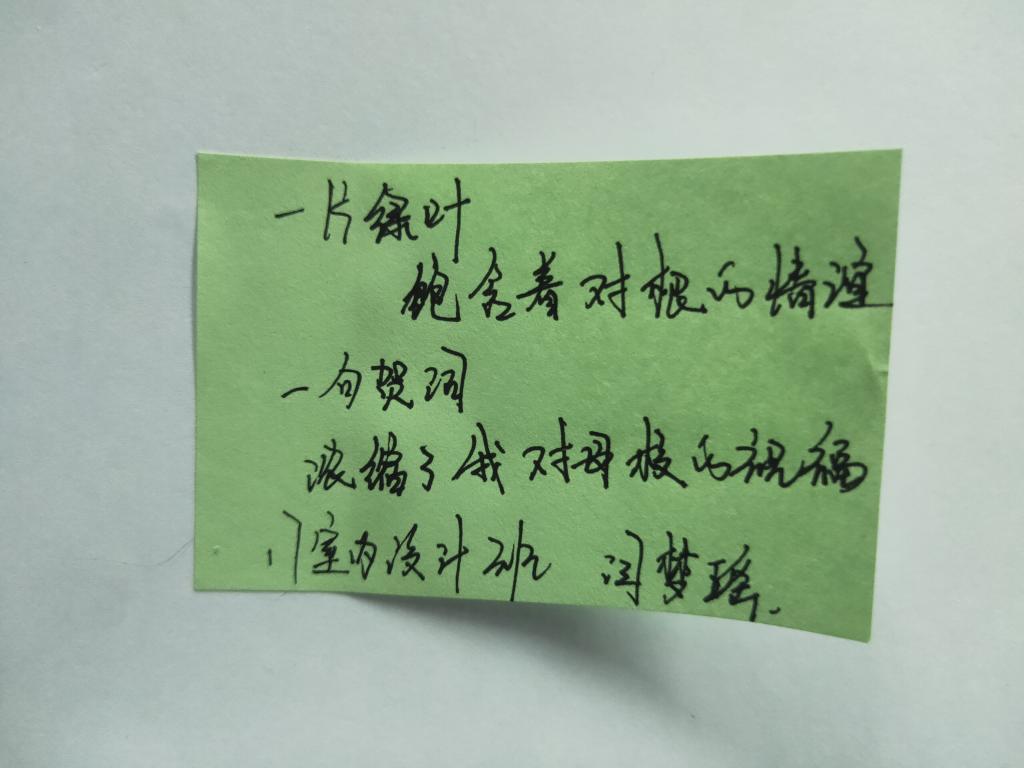 一片绿叶
饱含着对根的情谊
一句贺词
浓缩了我对母校的祝福
17室内设计班 闫梦瑶.